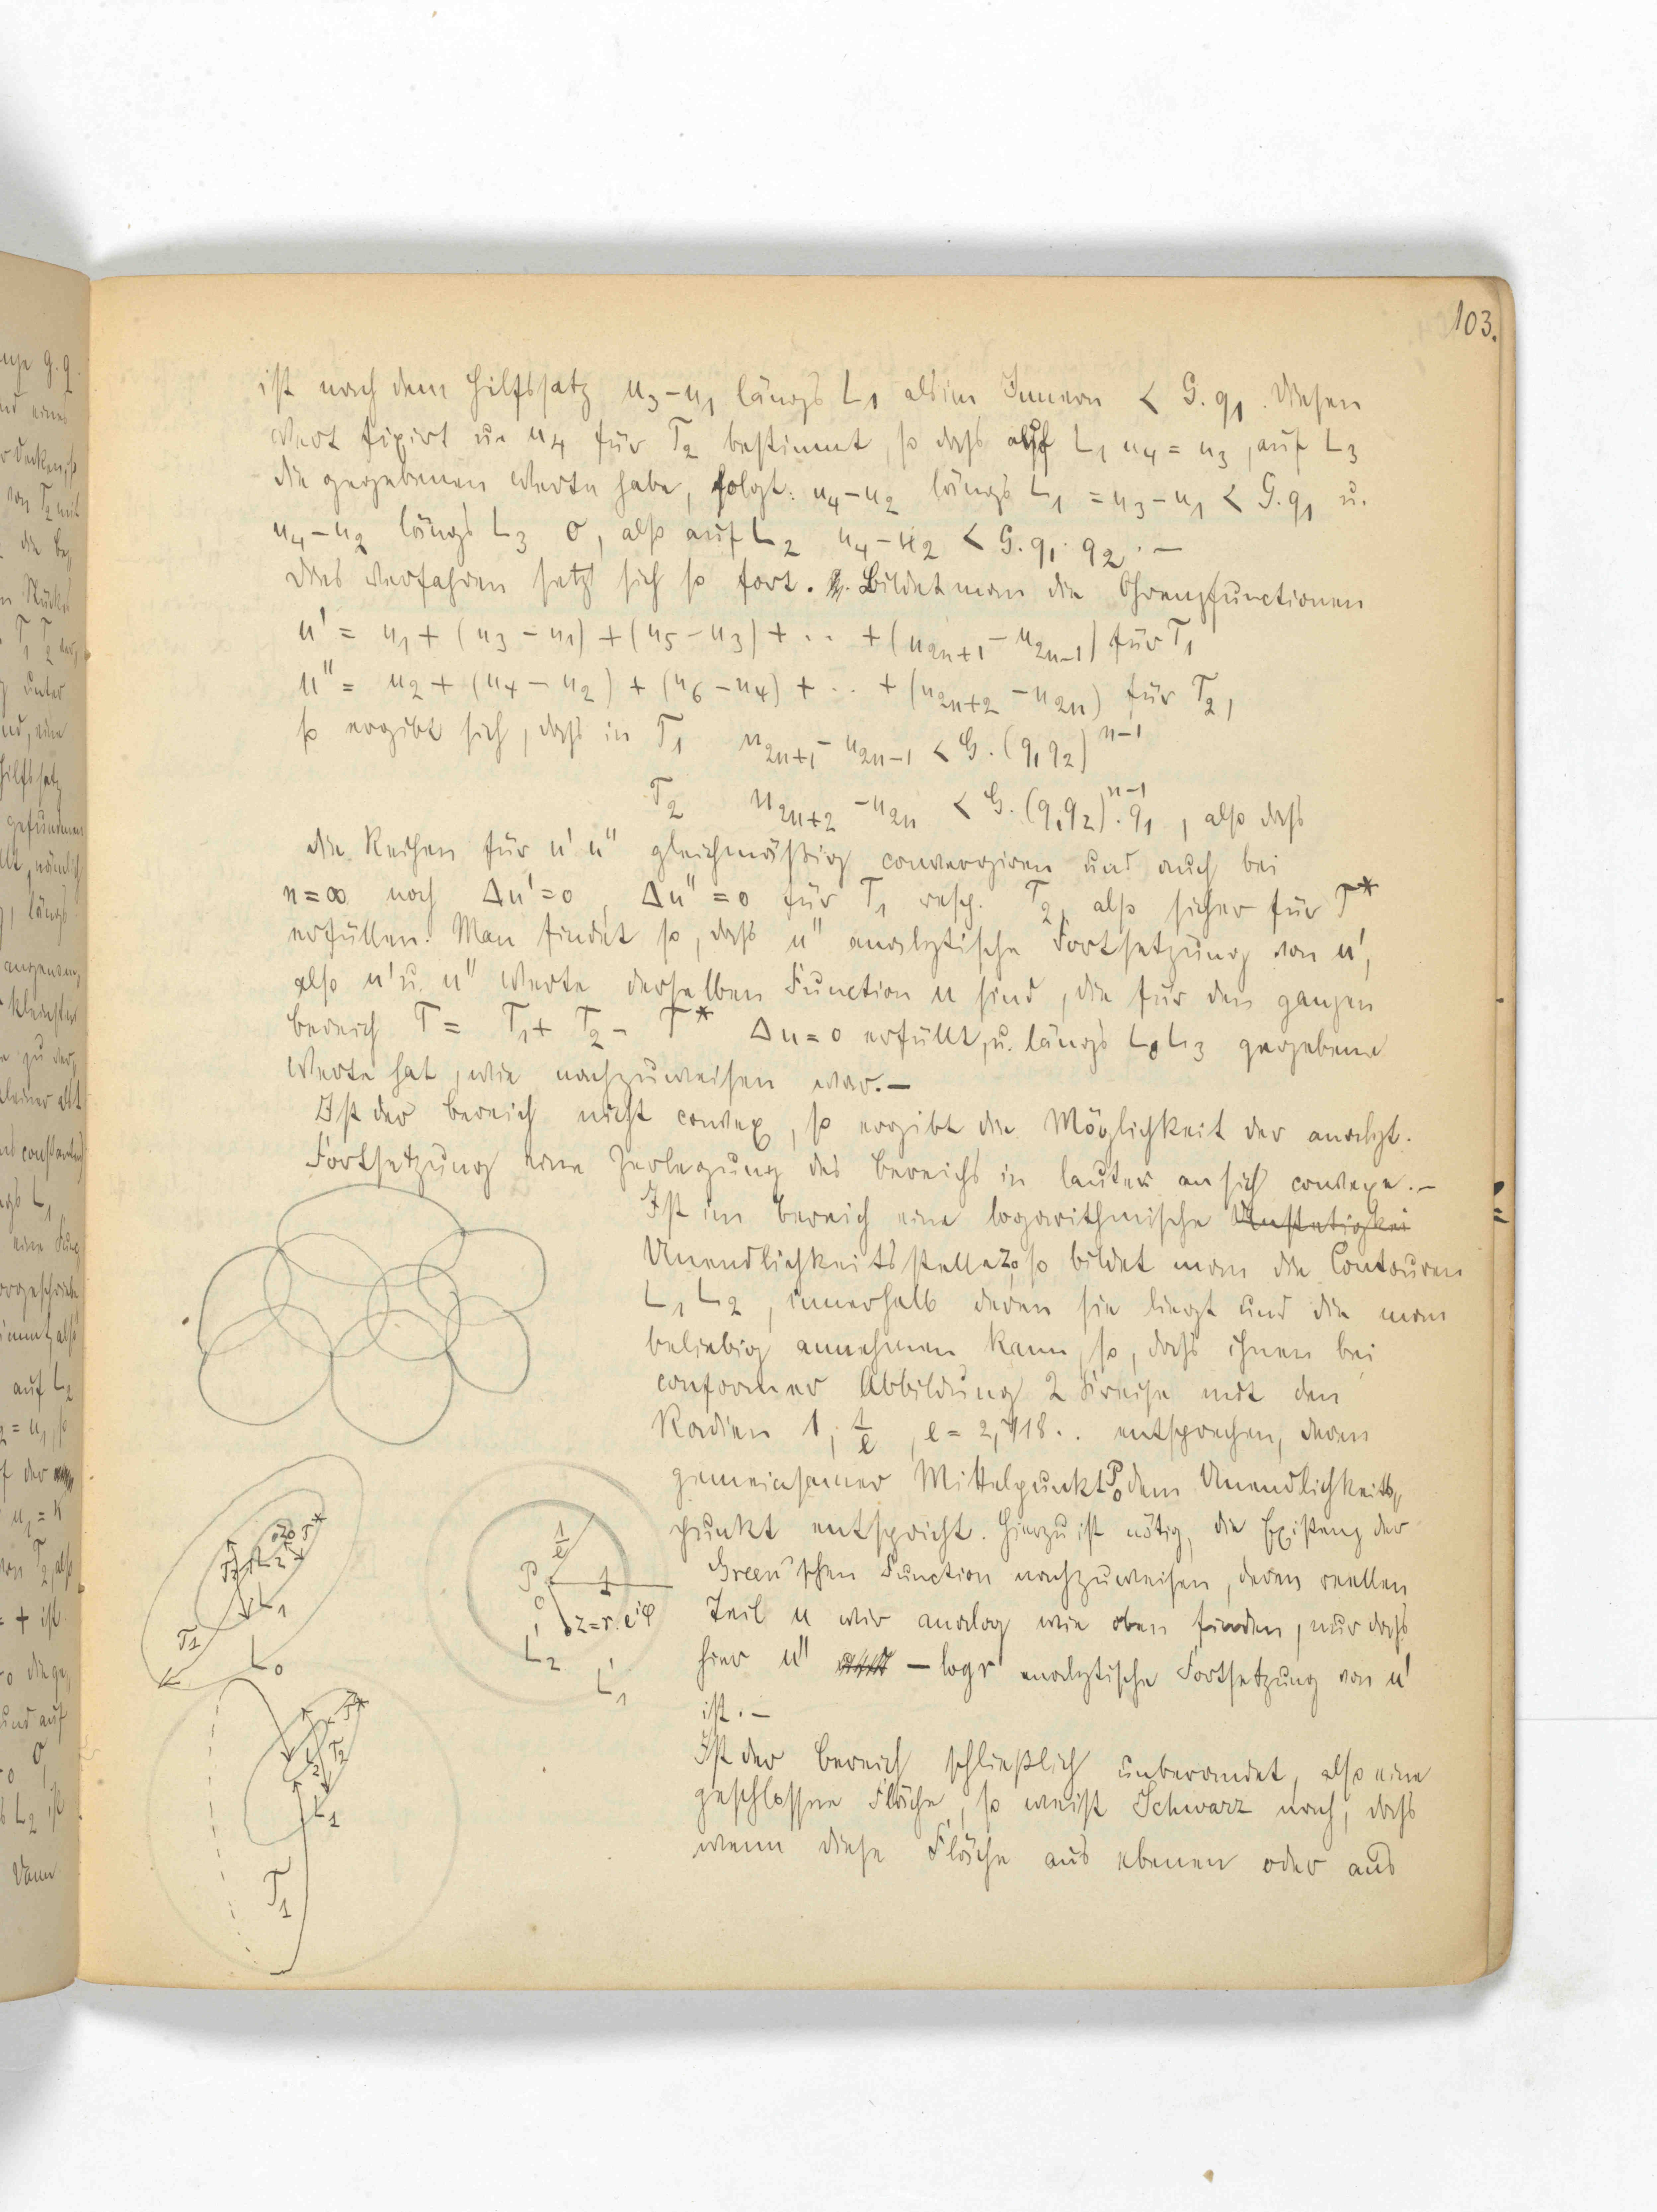 103.
ist nach dem Hilfssatz u₃-u₁ längs L₁ als im Innern < G.q₁. Diesen
Wert fixirt u. u₄ für T₂ bestimmt, so dass auf L₁ u₄ = u₃, auf L₃
die gegebenen Werte habe, folgt: u₄-u₂ längs L₁ = u₃-u₁ < G.q₁ u.
u₄-u₂ längs L₃ 0, also auf L₂ u₄-u₂ < G.q₁.q₂.—
Dies Verfahren setzt sich so fort. Bildet man die Grenzfunctionen
u' = u₁ + (u₃-u₁) + (u₅-u₃) + .. + (u₂ₙ₊₁ - u₂ₙ₋₁) für T₁
u'' = u₂ + (u₄-u₂) + (u₆-u₄) + .. + (u₂ₙ₊₂ - u₂ₙ) für T₂,
so ergibt sich, dass in T₁ u₂ₙ₊₁ - u₂ₙ₋₁ < G.(q₁q₂)ⁿ⁻¹
T₂ u₂ₙ₊₂ - u₂ₙ < G.(q₁q₂)ⁿ⁻¹.q₁, also dass
die Reihen für u' u'' gleichmäßig convergiren und auch bei
n=∞ noch Δu'=0, Δu''=0 für T₁ resp. T₂, also sicher für T*
erfüllen. Man findet so, dass u'' analytische Fortsetzung von u',
also u' u. u'' Werte derselben Function u sind, die für den ganzen
Bereich T = T₁ + T₂ - T* Δu=0 erfüllt, u. längs L₀ L₃ gegebene
Werte hat, wie nachzuweisen war.—
Ist der Bereich nicht convex, so ergibt die Möglichkeit der analyt.
Fortsetzung eine Zerlegung des Bereichs in lauter an sich convexe.—
Ist im Bereich eine logarithmische Unstetigkei
Unendlichkeitsstelle z₀, so bildet man die Contouren
L₁ L₂, innerhalb deren sie liegt und die man
beliebig annehmen kann, so, dass ihnen bei
conformer Abbildung 2 Kreise mit den
Radien 1, 1/e, e = 2,718.. entsprechen, deren
gemeinsamer Mittelpunkt P₀ dem Unendlichkeits-
punkt entspricht. Hierzu ist nötig, die Existenz der
Green'schen Function nachzuweisen, deren reellen
Teil u wir analog wie oben finden, nur dass
hier u'' - log r analytische Fortsetzung von u'
ist.—
Ist der Bereich schließlich unberandet, also eine
geschlossne Fläche, so weist Schwarz nach, dass
wenn diese Fläche aus ebenen oder aus
z₀ T*
T₂ L₂
L₁
T₁
L₀
1/e
P₀ 1
z=r.e^{iφ}
L₂'
L₁'
T*
L₂ T₂
L₁
T₁